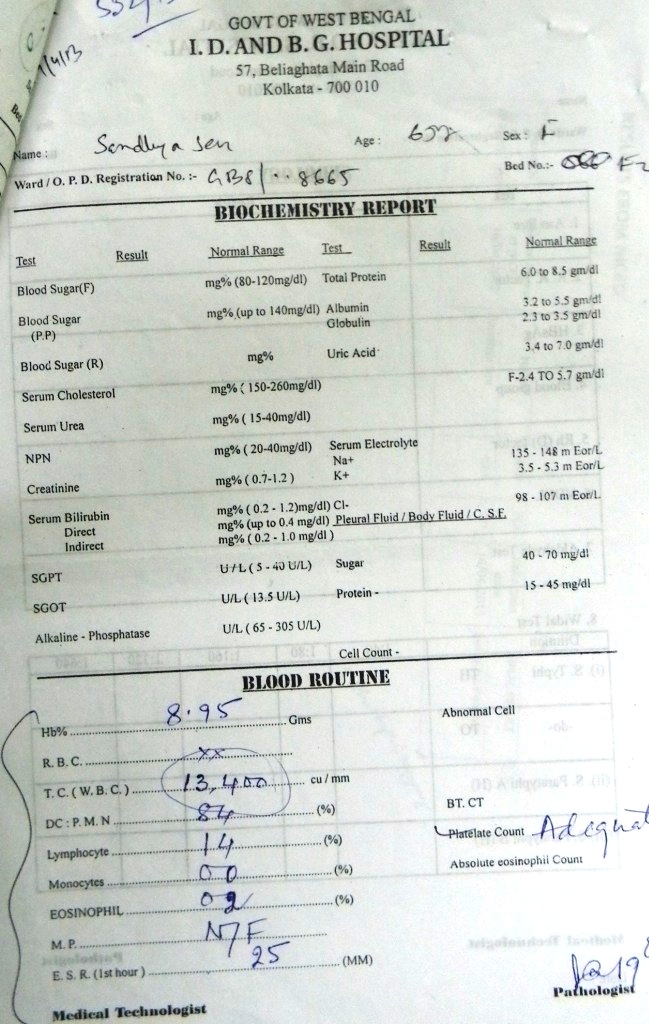 GOVT OF WEST BENGAL
I. D. AND B. G. HOSPITAL
57, Beliaghata Main Road
Kolkata - 700 010
Name : Sandhya Sen Age : 65 Sex : F
Ward / O. P. D. Registration No. :- GB8/..8665 Bed No.:- F-2
BIOCHEMISTRY REPORT
Test Result Normal Range Test Result Normal Range
Blood Sugar(F) mg% (80-120mg/dl) Total Protein 6.0 to 8.5 gm/dl
Blood Sugar mg% (up to 140mg/dl) Albumin 3.2 to 5.5 gm/dl
(P.P) Globulin 2.3 to 3.5 gm/dl
Blood Sugar (R) mg% Uric Acid 3.4 to 7.0 gm/dl
Serum Cholesterol mg% ( 150-260mg/dl) F-2.4 TO 5.7 gm/dl
Serum Urea mg% ( 15-40mg/dl)
NPN mg% ( 20-40mg/dl) Serum Electrolyte
Na+ 135 - 148 m Eor/L
Creatinine mg% ( 0.7-1.2 ) K+ 3.5 - 5.3 m Eor/L
Serum Bilirubin mg% ( 0.2 - 1.2)mg/dl) Cl- 98 - 107 m Eor/L
Direct mg% (up to 0.4 mg/dl) Pleural Fluid / Body Fluid / C. S.F.
Indirect mg% ( 0.2 - 1.0 mg/dl )
SGPT U/L ( 5 - 40 U/L) Sugar 40 - 70 mg/dl
SGOT U/L ( 13.5 U/L) Protein - 15 - 45 mg/dl
Alkaline - Phosphatase U/L ( 65 - 305 U/L)
Cell Count -
BLOOD ROUTINE
Hb% 8.95 Gms Abnormal Cell
R. B. C. xx
T. C. ( W. B. C. ) 13,400 cu / mm
DC : P. M. N 84 (%) BT. CT
Lymphocyte 14 (%) Platelate Count Adequat
Monocytes 00 (%) Absolute eosinophil Count
EOSINOPHIL 02 (%)
M. P. N/F
E. S. R. (1st hour) 25 (MM)
Pathologist
Medical Technologist